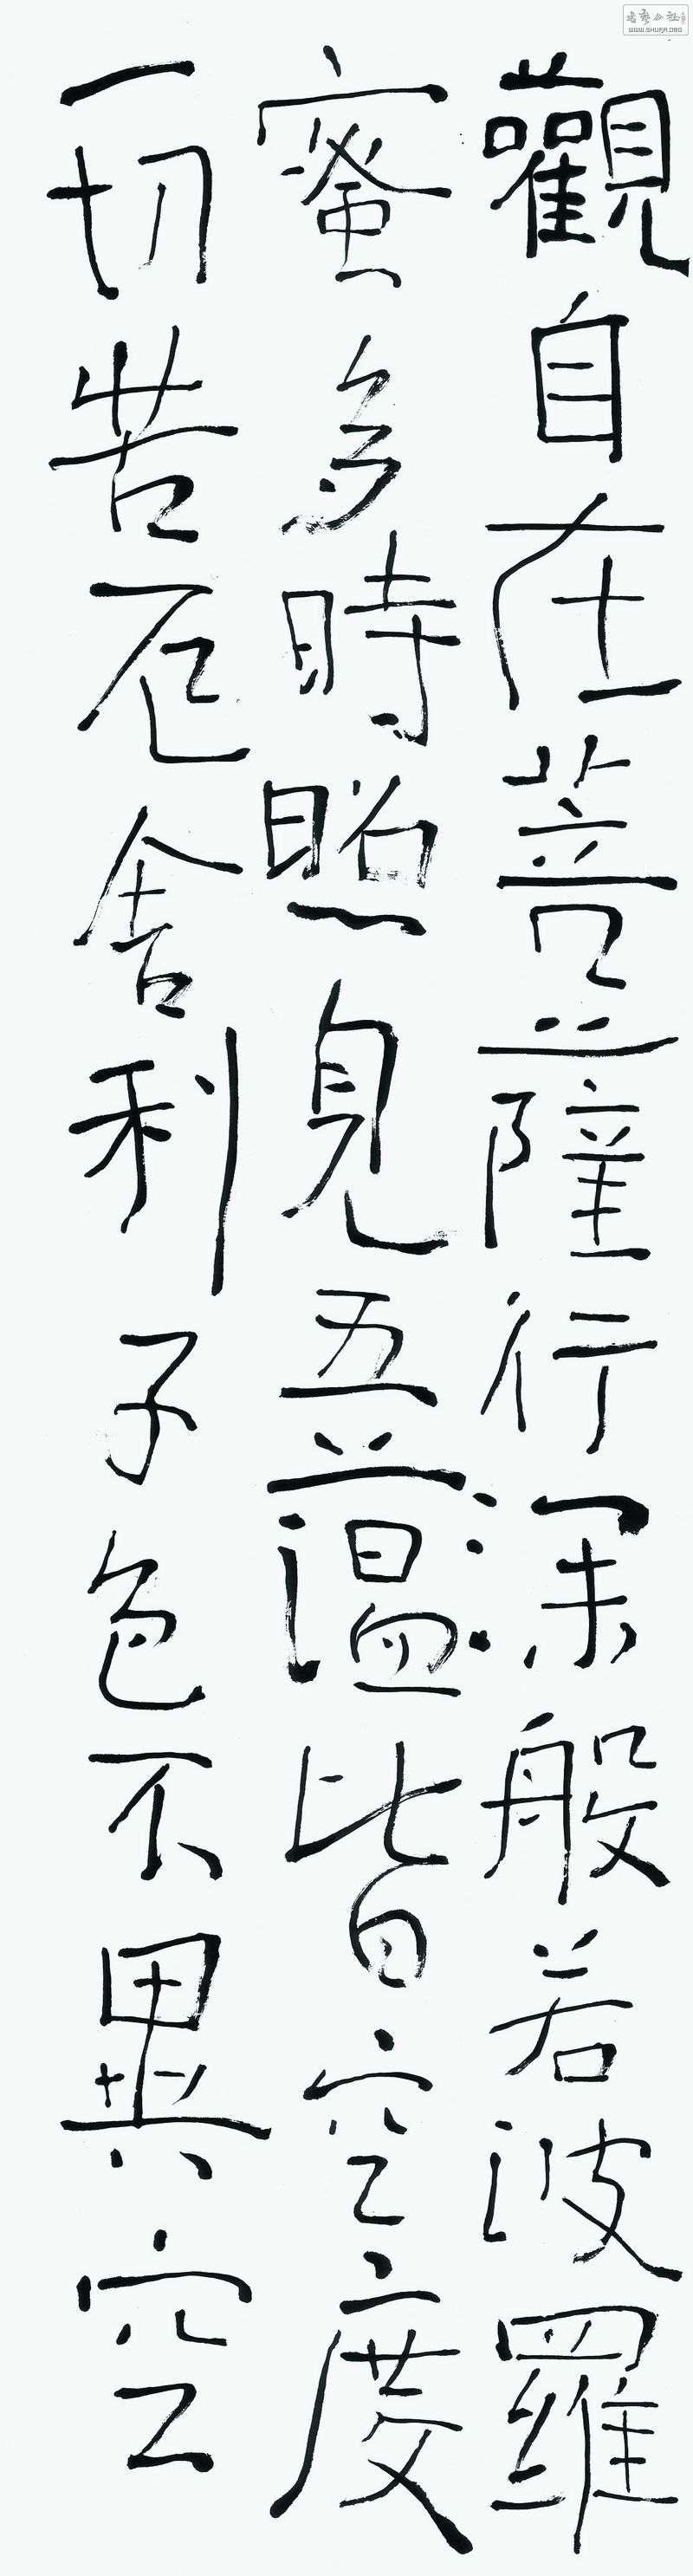 觀自在菩薩行深般若波羅
蜜多時照見五蘊皆空度
一切苦厄舍利子色不異空
WWW.SHUFA.ORG